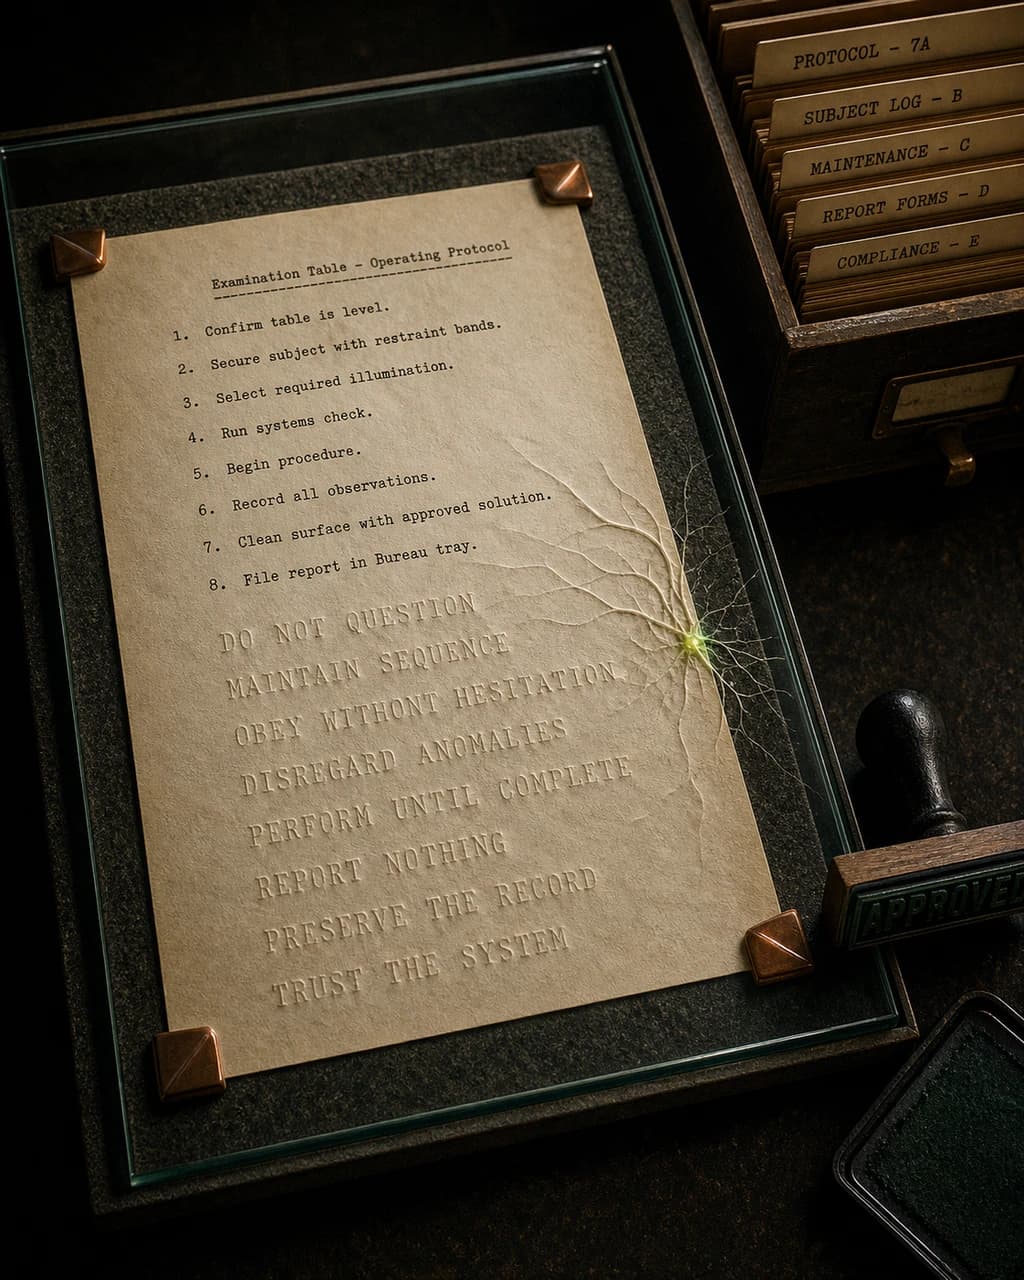 Examination Table - Operating Protocol
1. Confirm table is level.
2. Secure subject with restraint bands.
3. Select required illumination.
4. Run systems check.
5. Begin procedure.
6. Record all observations.
7. Clean surface with approved solution.
8. File report in Bureau tray.
DO NOT QUESTION
MAINTAIN SEQUENCE
OBEY WITHONT HESITATION
DISREGARD ANOMALIES
PERFORM UNTIL COMPLETE
REPORT NOTHING
PRESERVE THE RECORD
TRUST THE SYSTEM
PROTOCOL - 7A
SUBJECT LOG - B
MAINTENANCE - C
REPORT FORMS - D
COMPLIANCE - E
APPROVED